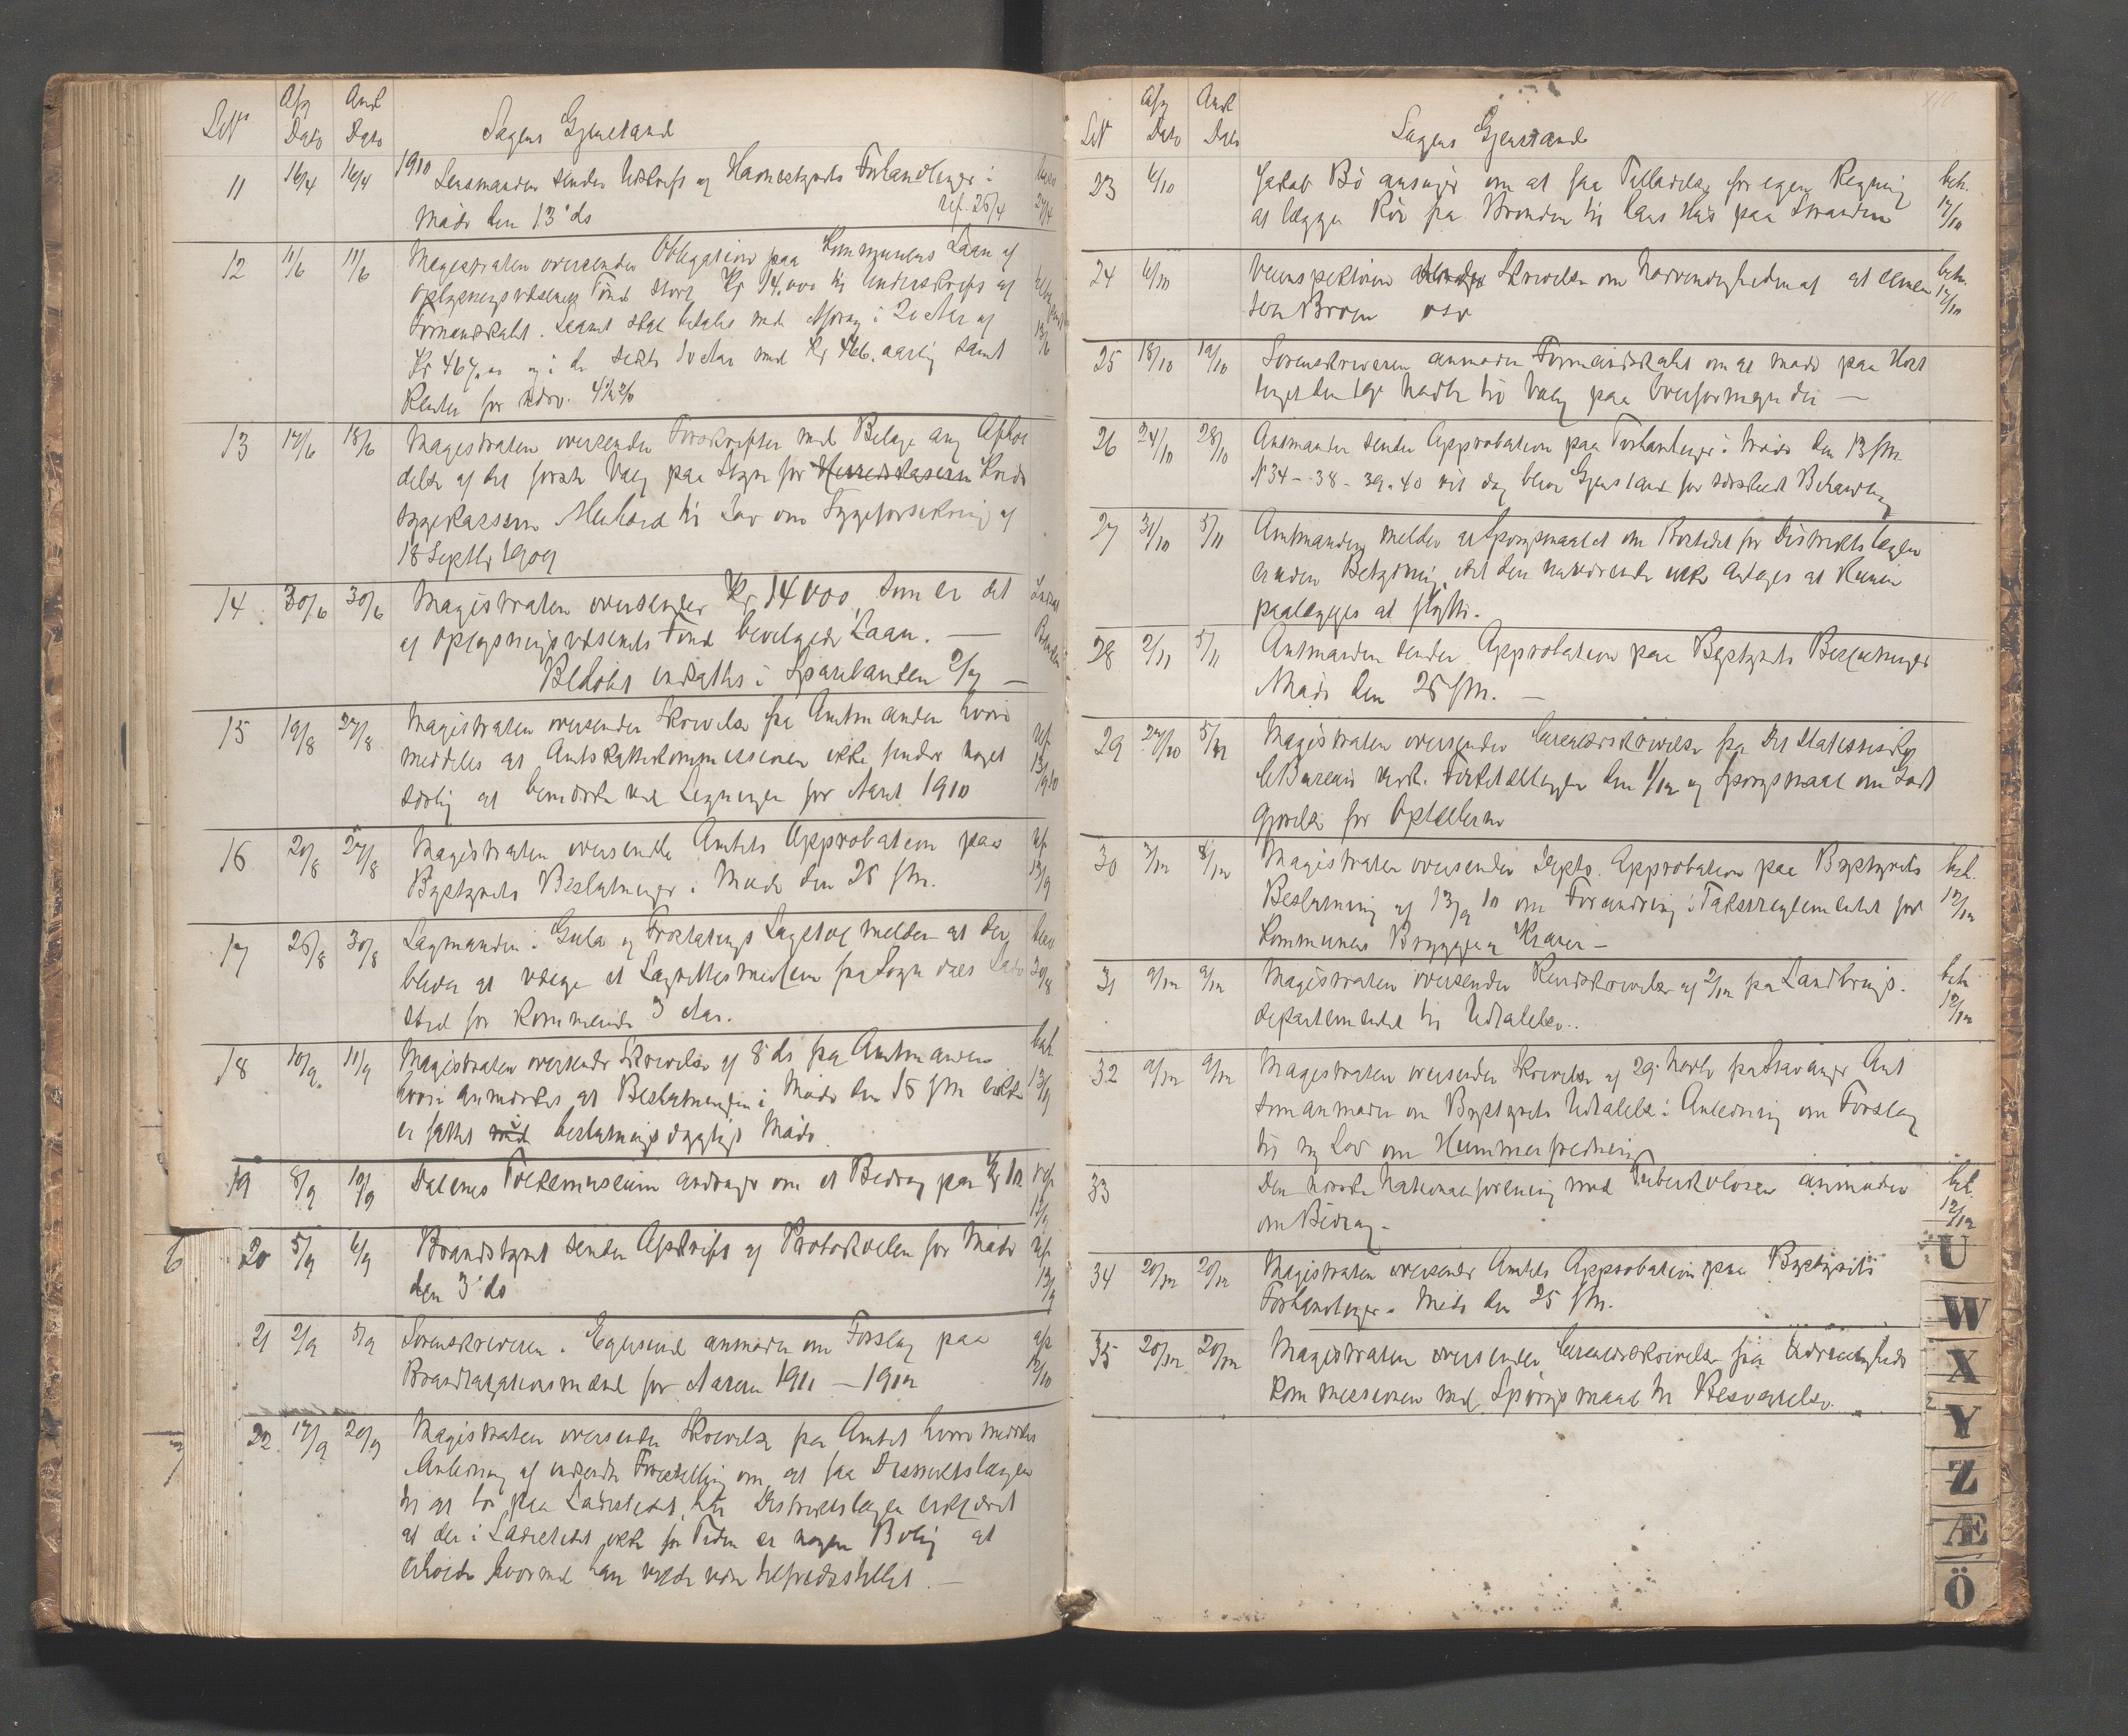 LN Afg Dato Ank Dato Sagens Gjenstand
11 16/4 16/4 1910 Lensmanden sender Udskrift af Havnestyrets Forhandlinger i
Møde den 13' ds ref. 25/4
12 11/6 11/6 Magistraten oversender Obligation paa Kommunens Laan af
Oplysningsvæsenets Fond stort Kr 14.000 til Underskrift af
Formandskabet. Laanet skal betales med Afdrag i 20 Aar af
Kr 467,00 og i de sidste 10 Aar med Kr 466. aarlig samt
Renter for Tiden. 4 1/2 %
13 17/6 18/6 Magistraten oversender Forskrifter med Bilage ang Afhol
delse af det første Valg paa Styre for Kreds
sygekassen i Henhold til Lov om Sygeforsikring af
18 Septbr 1909
14 30/6 30/6 Magistraten oversender Kr 14000, som er det
af Oplysningsvæsenets Fond bevilgede Laan. —
Beløbet indsattes i Sparebanken 2/7 —
15 19/8 27/8 Magistraten oversender Skrivelse fra Amtmanden hvori
meddeles at Amtsskattekommissionen ikke finder noget
særlig at bemærke ved Ligningen for Aaret 1910
ref. 13/9 10
16 20/8 27/8 Magistraten oversendte Amtets Approbation paa
Bystyrets Beslutninger i Møde den 28 fm.
ref. 13/9
17 26/8 30/8 Lagmanden i Gula og Frostatings Lagstol melder at der
bliver at vælge et Lagrettesmedlem fra Sogndals Lade
sted for kommende 3 Aar.
30/8
18 10/9 11/9 Magistraten oversender Skrivelse af 8' ds fra Amtmanden
hvori anmærkes at Beslutningen i Møde den 18 fm ikke
er fattet beslutningsdygtigt Møde.
beh. 13/9
19 8/9 10/9 Dalenes Folkemuseum andrager om et Bidrag paa Kr 10.
ref. 13/9
20 5/9 6/9 Brandstyret sender Afskrift af Protokollen for Møde
den 3' ds
ref. 13/9
21 2/9 3/9 Sorenskriveren i Egersund anmoder om Forslag paa
Brandtaxationsmænd for Aarene 1911 — 1912
22 17/9 20/9 Magistraten oversender Skrivelse fra Amtet hvori meddeles
Anledning af indsendt Forestilling om at faa Distriktslægen
til at bo paa Ladestedet, har Distriktslægen erklæret
at der i Ladestedet ikke for Tiden er nogen Bolig at
erholde hvormed han vilde være tilfredsstillet. —
LN Afg Dato Ank Dato Sagens Gjenstand
23 6/10 Jakob Bö ansøger om at faa Tilladelse for egen Regning
at lægge Rör fra Brönden til hans Hus paa Stranden
beh. 12/10
24 6/10 Veiinspektören sender Skrivelse om Nødvendigheden af at cemen
tere Broen osv
beh. 12/10
25 18/10 19/10 Sorenskriveren anmoder Formandskabet om at møde paa
Tinget den Novbr til Valg paa Overformynder —
26 24/10 28/10 Amtmanden sender Approbation paa Forhandlinger i Møde den 13 fm.
N 34 - 38 - 39 - 40 vil dog blive Gjenstand for særskilt Behandling
27 31/10 5/11 Amtmanden melder at Spørgsmaalet om Bosted for Distriktslægen
er uden Betydning, idet den nuværende ikke antages at kunne
paalægges at flytte.
28 2/11 5/11 Amtmanden sender Approbation paa Bystyrets Beslutninger
Møde den 25 fm. —
29 27/10 5/11 Magistraten oversender Cirkulærskrivelse fra Det Statistiske
C Bureau vedk. Folketællingen den 1/12 og Spørgsmaal om Godt
gjørelse for Optællerne
30 7/12 8/12 Magistraten oversender Depts. Approbation paa Bystyrets
Beslutning af 13/9 10 om Forandring i Takstreglementet for
Kommunens Brygge og Kraner —
beh. 12/12
31 9/12 9/12 Magistraten oversender Rundskrivelse af 2/12 fra Landbrugs-
departementet til Udtalelse.
beh. 12/12
32 9/12 9/12 Magistraten oversender Skrivelse af 29. Novbr fra Stavanger Amt
som anmoder om Bystyrets Udtalelse i Anledning om Forslag
til ny Lov om Hummerfredning
33 Den norske Nationalforening mod Tuberkulosen anmoder
om Bidrag —
beh. 12/12
34 20/12 20/12 Magistraten oversender Amtets Approbation paa Bystyrets
Forhandlinger i Møde den 25 fm.
35 20/12 20/12 Magistraten oversender Cirkulærskrivelse fra
Kommissionen med Spørgsmaal til Besvarelse.
U
W
X
Y
Z
Æ
Ö